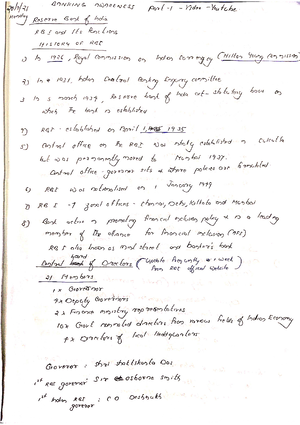 BANKING AWARENESS Part-1-
Reserve Bank of India
RBI and its functions
HISTORY OF RBI
1) In 1926, Royal Commission on Indian Currency (Hilton Young commission)
2) In 1931, Indian Central Banking Enquiry committee
3 In 5 march 1934, Reserve bank of India act- statutory base on
which the bank is established
4) RBI - established on April 1, 1935
5) Central office on the RBI was initially established in Calcutta
but was permanently moved to Mumbai 1937.
Central office - governor sits & where policies are formulated
6) RBI was nationalised on 1 January 1949
7) RBI - 4 zonal offices - chennai, Delhi, Kolkata and Mumbai
8) Bank active in promoting financial inclusion policy & is a leading
member of the alliance for financial inclusion (AFI)
RBI also known as mint street and banker's bank
Central board of Directors (update frequently 1 week
from RBI official website
21 Members
1 x Governor
4 x Deputy Governors
2 x Finance ministry representatives
10 x Govt nominated directors from various fields of Indian Economy
4 x Directors of local Headquarters
Governor : shri shaktikanta Das
1st RBI governor Sir osborne smith
1st Indian RBI governor : C D Deshmukh